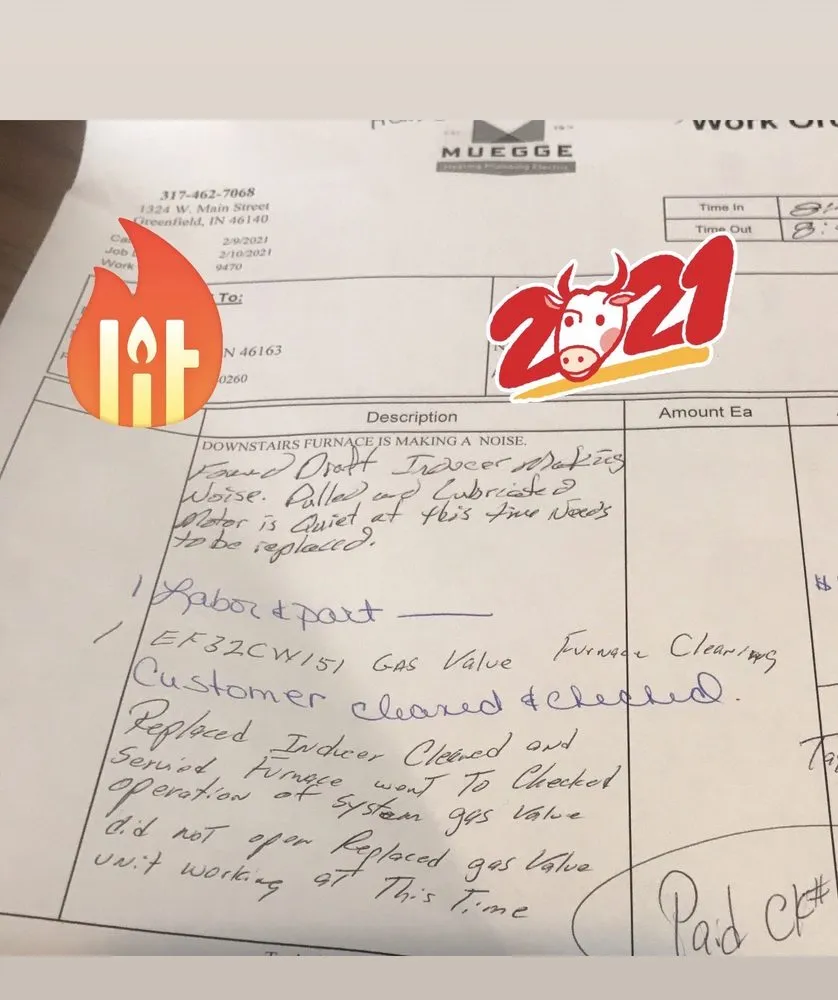 MUEGGE
Heating Plumbing Electric
317-462-7068
1324 W. Main Street
Greenfield, IN 46140
2/9/2021
Job 2/10/2021
Work 9470
Time In
Time Out
To:
N 46163
0260
lit
2021
Description
Amount Ea
DOWNSTAIRS FURNACE IS MAKING A NOISE.
Found Draft Inducer Making
Noise. Pulled and Lubricated
Motor is Quiet at this time Needs
to be replaced.
1 Labor & part
1 EF32CW151 Gas Value Furnace Cleaning
Customer cleaned & checked.
Replaced Inducer Cleaned and
Serviced Furnace went To Checked
operation of system gas value
did not open Replaced gas Value
unit working at This Time
Paid Ck#